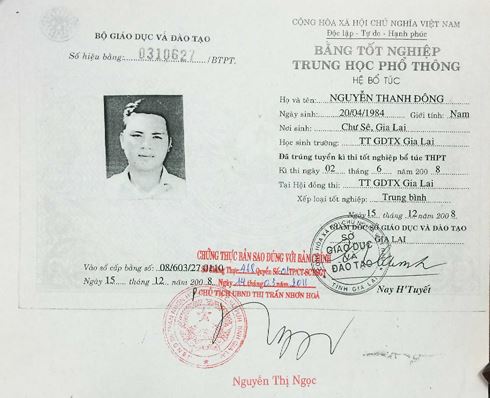 BỘ GIÁO DỤC VÀ ĐÀO TẠO
Số hiệu bằng: 0310627 /BTPT.
CỘNG HÒA XÃ HỘI CHỦ NGHĨA VIỆT NAM
Độc lập - Tự do - Hạnh phúc
BẰNG TỐT NGHIỆP
TRUNG HỌC PHỔ THÔNG
HỆ BỔ TÚC
Họ và tên: NGUYỄN THANH ĐÔNG
Ngày sinh: 20/04/1984 Giới tính: Nam
Nơi sinh: Chư Sê, Gia Lai
Học sinh trường: TT GDTX Gia Lai
Đã trúng tuyển kì thi tốt nghiệp bổ túc THPT
Kì thi ngày 02 tháng 6 năm 200 8
Tại Hội đồng thi: TT GDTX Gia Lai
Xếp loại tốt nghiệp: Trung bình
Ngày 15 tháng 12 năm 200 8
GIÁM ĐỐC SỞ GIÁO DỤC VÀ ĐÀO TẠO
GIA LAI
SỞ
GIÁO DỤC
VÀ
ĐÀO TẠO
TỈNH GIA LAI
Nay H'Tuyết
Vào sổ cấp bằng: 08/603/27.0110
Ngày 15 tháng 12 năm 200 8
CHỨNG THỰC BẢN SAO ĐÚNG VỚI BẢN CHÍNH
Số Chứng Thực Quyển Số TP/CT-SCT/BC
Ngày 14 tháng 03 năm 2011
CHỦ TỊCH UBND THỊ TRẤN NHƠN HOÀ
Nguyễn Thị Ngọc